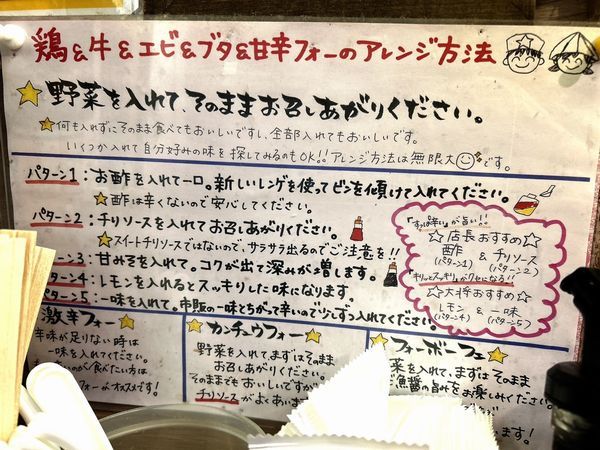 鶏&牛&エビ&ブタ&甘辛フォーのアレンジ方法
☆野菜を入れて、そのままお召しあがりください。
☆何も入れずにそのまま食べてもおいしいですし、全部入れてもおいしいです。
いくつか入れて自分好みの味を探してみるのもOK!!アレンジ方法は無限大です。
パターン1:お酢を入れて一口。新しいレンゲを使ってビンを傾けて入れてください。
☆酢は辛くないので安心してください。
パターン2:チリソースを入れてお召しあがりください。
☆スイートチリソースではないので、サラサラ出るのでご注意を!!
ーン3:甘みそを入れて。コクが出て深みが増します。
ターン4:レモンを入れるとスッキリした味になります。
ーン5:一味を入れて。市販の一味とちがって辛いので少しずつ入れてください。
「すっぱ辛い」が旨い!!
☆店長おすすめ☆
酢 & チリソース
(パターン1) (パターン2)
キリッとスッキリがクセになる!!
☆大将おすすめ☆
レモン & 一味
(パターン4) (パターン5)
激辛フォー☆
辛味が足りない時は
一味を入れてください。
いのが食べたい方は
フォーがオススメです!
☆カンチュウフォー☆
野菜を入れて、まずはそのまま
お召しあがりください。
そのままでもおいしいですが
チリソースがよくあいます
☆フォーボーフェ☆
菜を入れて、まずはそのまま
漁醤の旨みをお楽しみください。
ます!